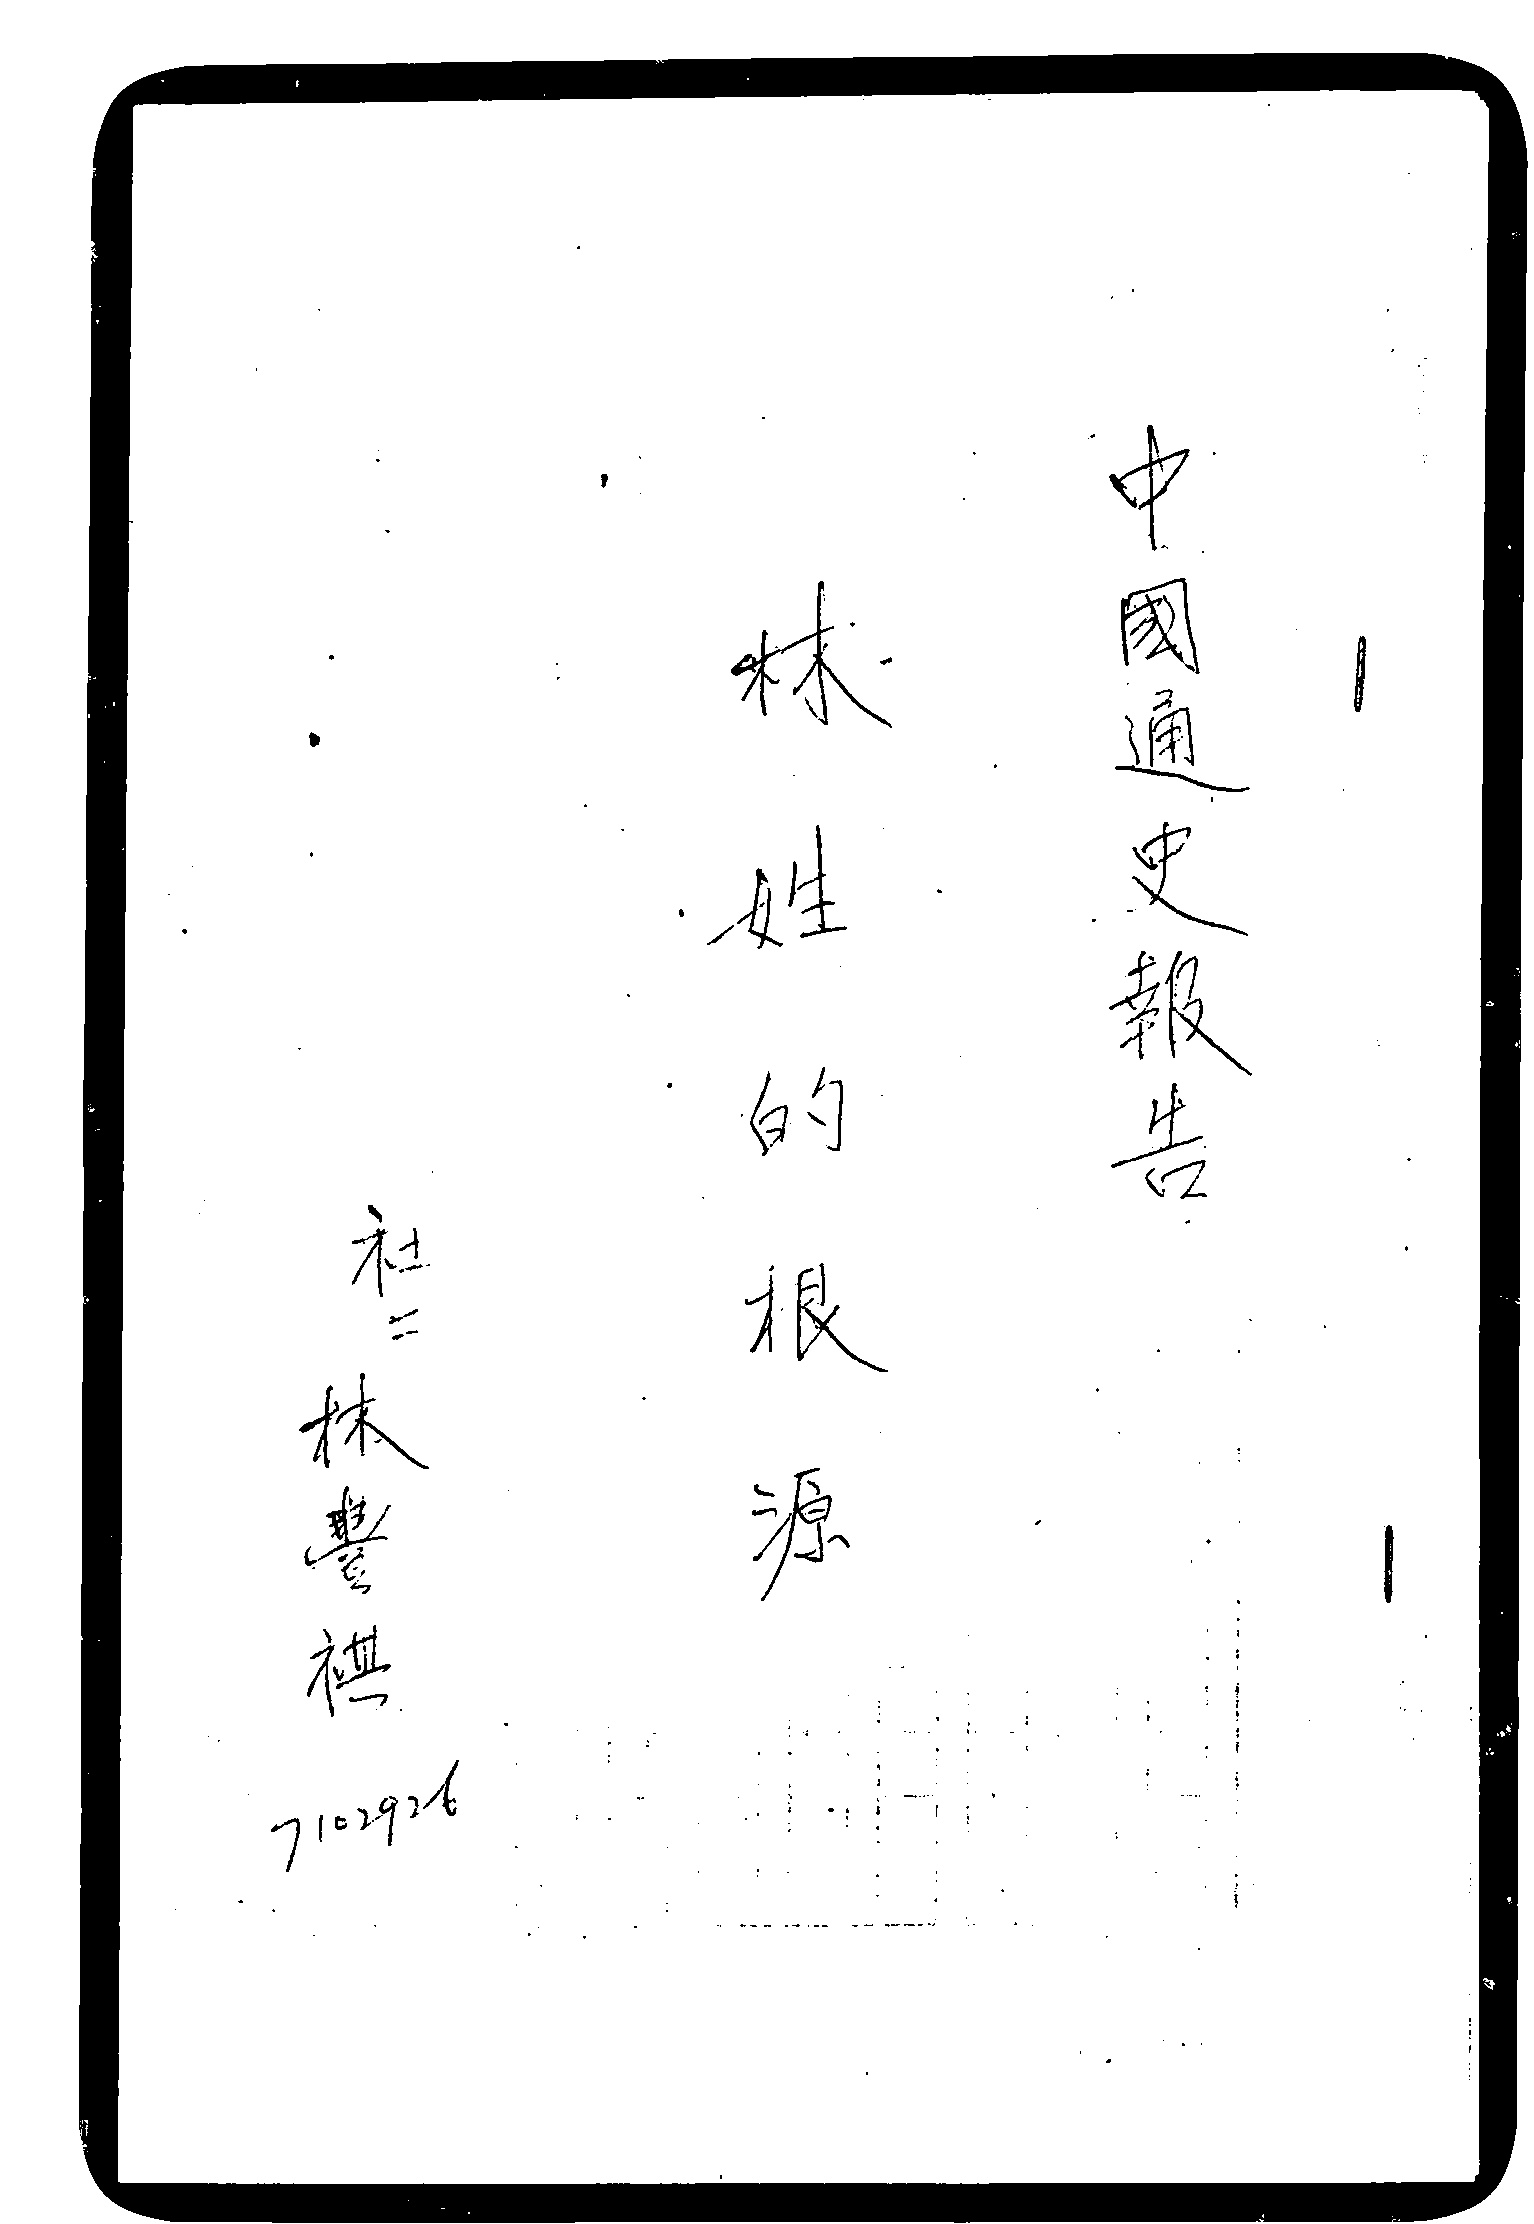 中國通史報告
林姓的根源
社二
林豐祺
7102926